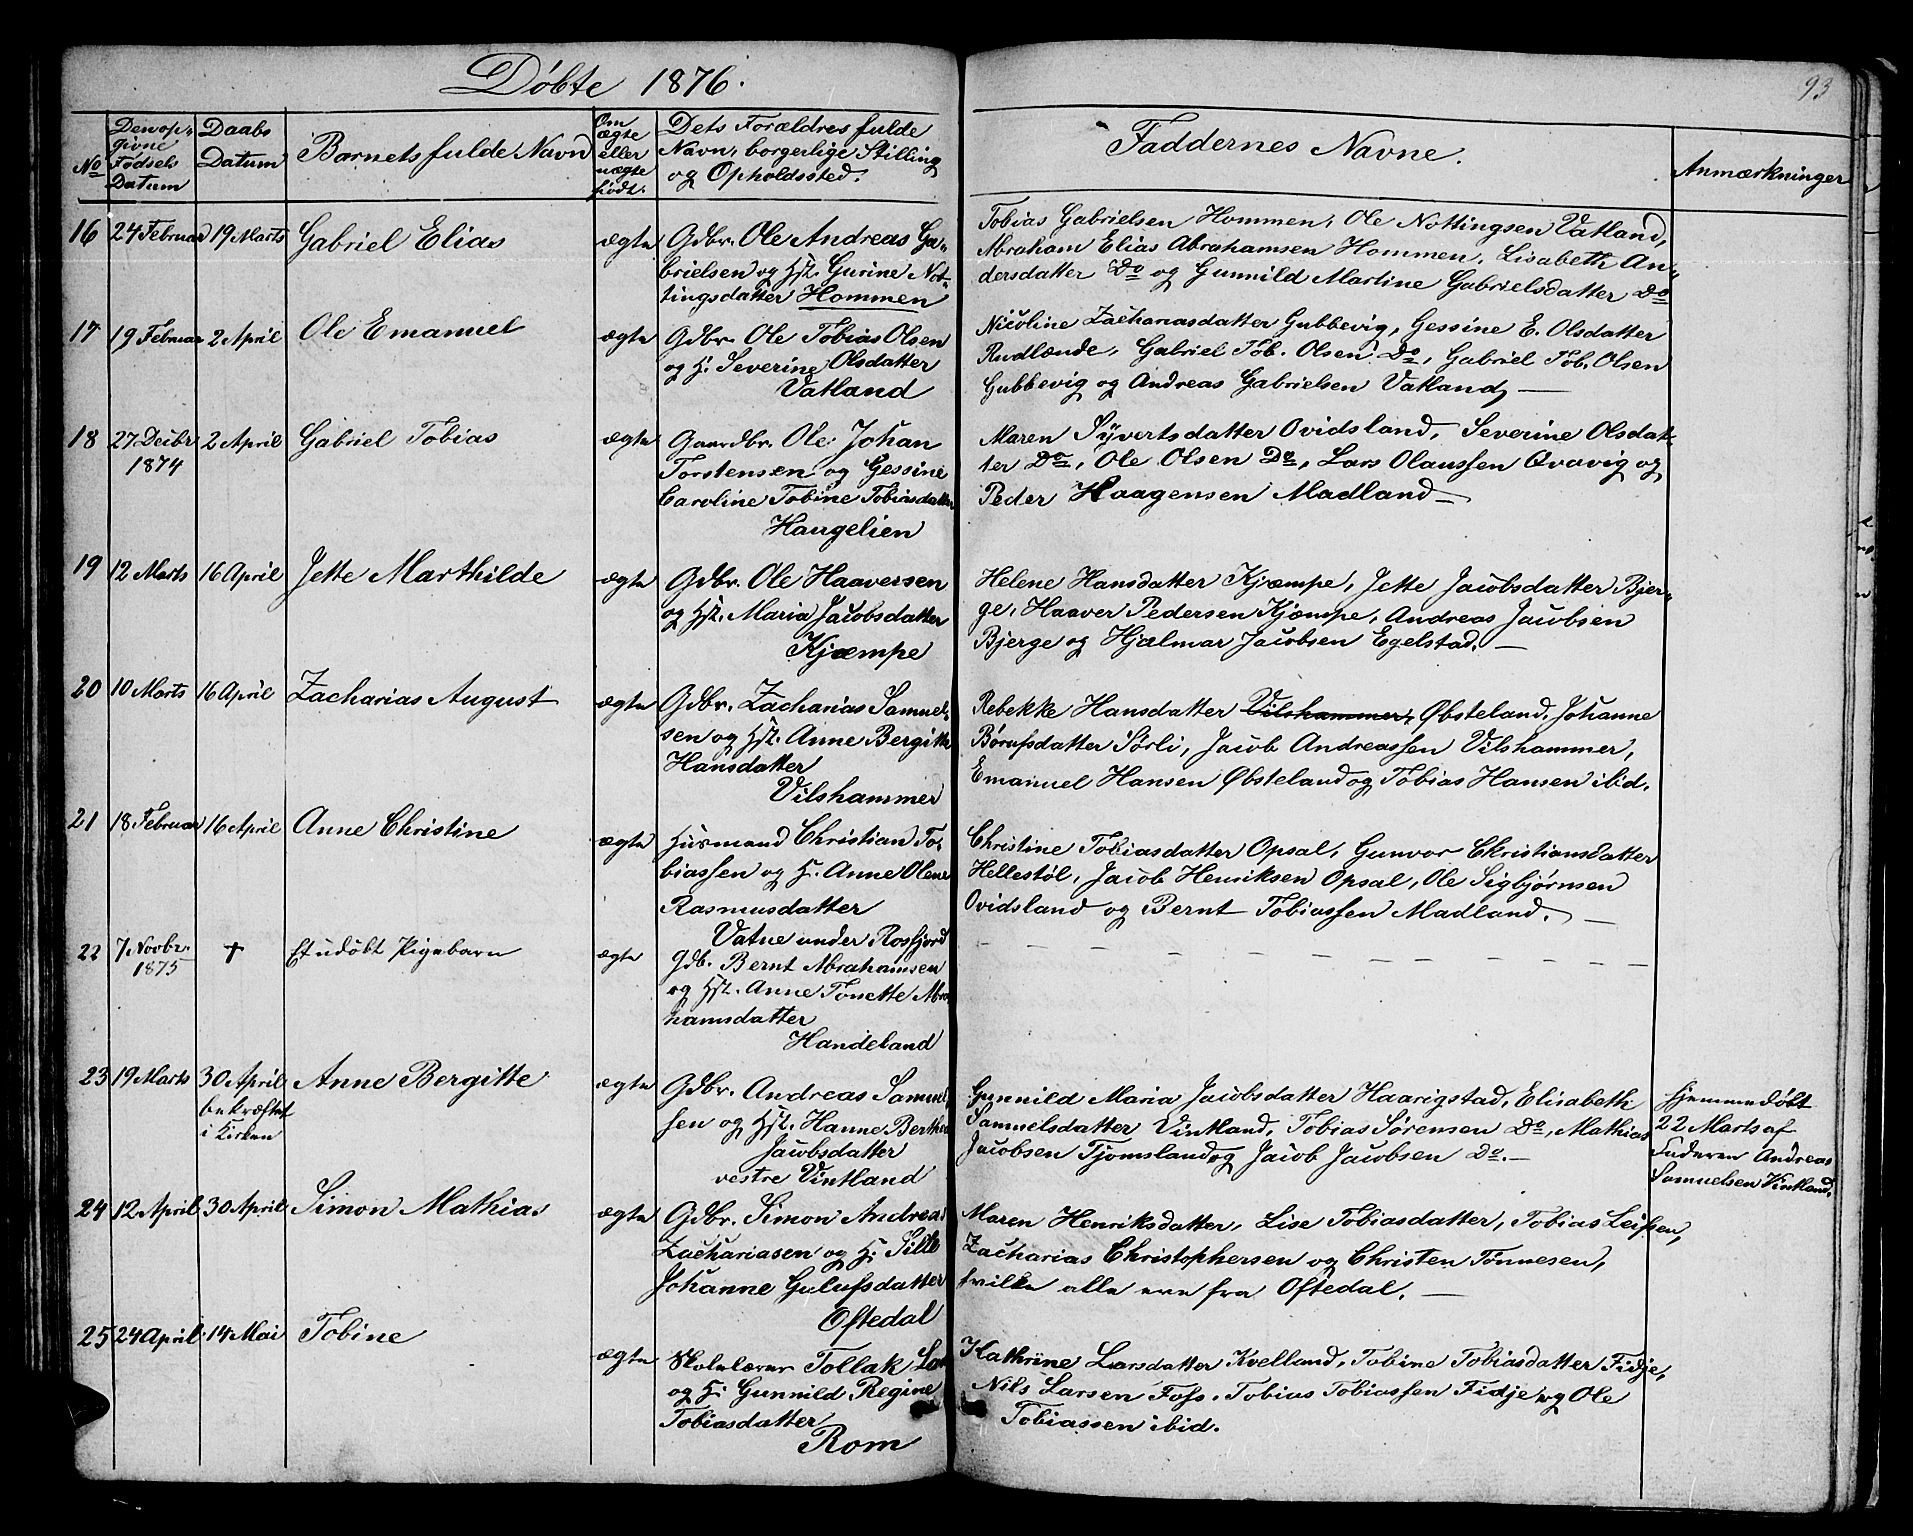 Döbte 1876.
93
No
Den op-
givne
Fødsels
Datum
Daabs
Datum
Barnets fulde Navn
Om
ægte
eller
uægte
født.
Dets Forældres fulde
Navn, borgerlige Stilling
og Opholdssted.
Faddernes Navne.
Anmærkninger
16 24 Februar 19 Marts Gabriel Elias ægte
Gdbr. Ole Andreas Ga-
brielsen og Hst. Gurine Not-
tingsdatter Hommen
Tobias Gabrielsen Hommen, Ole Nottingsen Vatland,
Abraham Elias Abrahamsen Hommen, Lisabeth An-
dersdatter Do og Gunnild Martine Gabrielsdatter Do
17 19 Februar 2 April Ole Emanuel ægte
Gdbr. Ole Tobias Olsen
og H. Severine Olsdatter
Vatland
Nicoline Zachariasdatter Gubbevig, Gessine E. Olsdatter
Rudlænde, Gabriel Tob. Olsen Do, Gabriel Tob. Olsen
Gubbevig og Andreas Gabrielsen Vatland, —
18 27 Decbr 2 April Gabriel Tobias ægte
1874
Gaardbr. Ole Johan
Torstensen og Gessine
Caroline Tobine Tobiasdatter
Haugelien
Maren Syvertsdatter Ovidsland, Severine Olsdat-
ter Do, Ole Olsen Do, Lars Olaussen Qvavig og
Peder Haagensen Madland —
19 12 Marts 16 April Jette Marthilde ægte
Gdbr. Ole Haaversen
og Hst. Maria Jacobsdatter
Kjæmpe
Helene Hansdatter Kjæmpe, Jette Jacobsdatter Bjer-
ge, Haaver Pedersen Kjæmpe, Andreas Jacobsen
Bjerge og Hjalmar Jacobsen Egelstad. —
20 10 Marts 16 April Zacharias August ægte
Gdbr. Zacharias Samuel-
sen og Hst. Anne Bergitte
Hansdatter
Vilshammer
Rebekke Hansdatter Vilshammer, Øbsteland, Johanne
Børufsdatter Sørli, Jacob Andreassen Vilshammer,
Emanuel Hansen Øbsteland og Tobias Hansen ibid.
21 18 Februar 16 April Anne Christine ægte
Husmand Christian To-
biassen og H. Anne Olene
Rasmusdatter
Vatne under Rosfjord
Christine Tobiasdatter Opsal, Gunvor Christiansdatter
Hellestøl, Jacob Henriksen Opsal, Ole Sigbjørnsen
Ovidsland og Bernt Tobiassen Madland. —
22 7 Novbr. + Et udöbt Pigebarn ægte
1875
Gdb. Bernt Abrahamsen
og Hst. Anne Tonette Abra
hamsdatter
Handeland
23 19 Marts 30 April Anne Bergitte ægte
bekræftet
i Kirken
Gdbr. Andreas Samuel-
sen og Hst. Hanne Berthe
Jacobsdatter
vestre Vintland
Gunnild Maria Jacobsdatter Haarigstad, Elisabeth
Samuelsdatter Vintland, Tobias Sørensen Do, Mathias
Jacobsen Tjomsland og Jacob Jacobsen Do. —
Hjemmedöbt
22 Marts af
Faderen Andreas
Samuelsen Vintland.
24 12 April 30 April Simon Mathias ægte
Gdbr. Simon Andreas
Zachariasen og H. Sille
Johanne Gulufsdatter
Oftedal
Maren Henriksdatter, Lise Tobiasdatter, Tobias Leifsen,
Zacharias Christophersen og Christen Tønnesen,
hvilke alle ere fra Oftedal. —
25 24 April 14 Mai Tobine ægte
Skolelærer Tollak Lar
og H. Gunnild Regine
Tobiasdatter
Rom
Kathrine Larsdatter Kvelland, Tobine Tobiasdatter Fidje,
Nils Larsen Foss, Tobias Tobiassen Fidje og Ole
Tobiassen ibid.